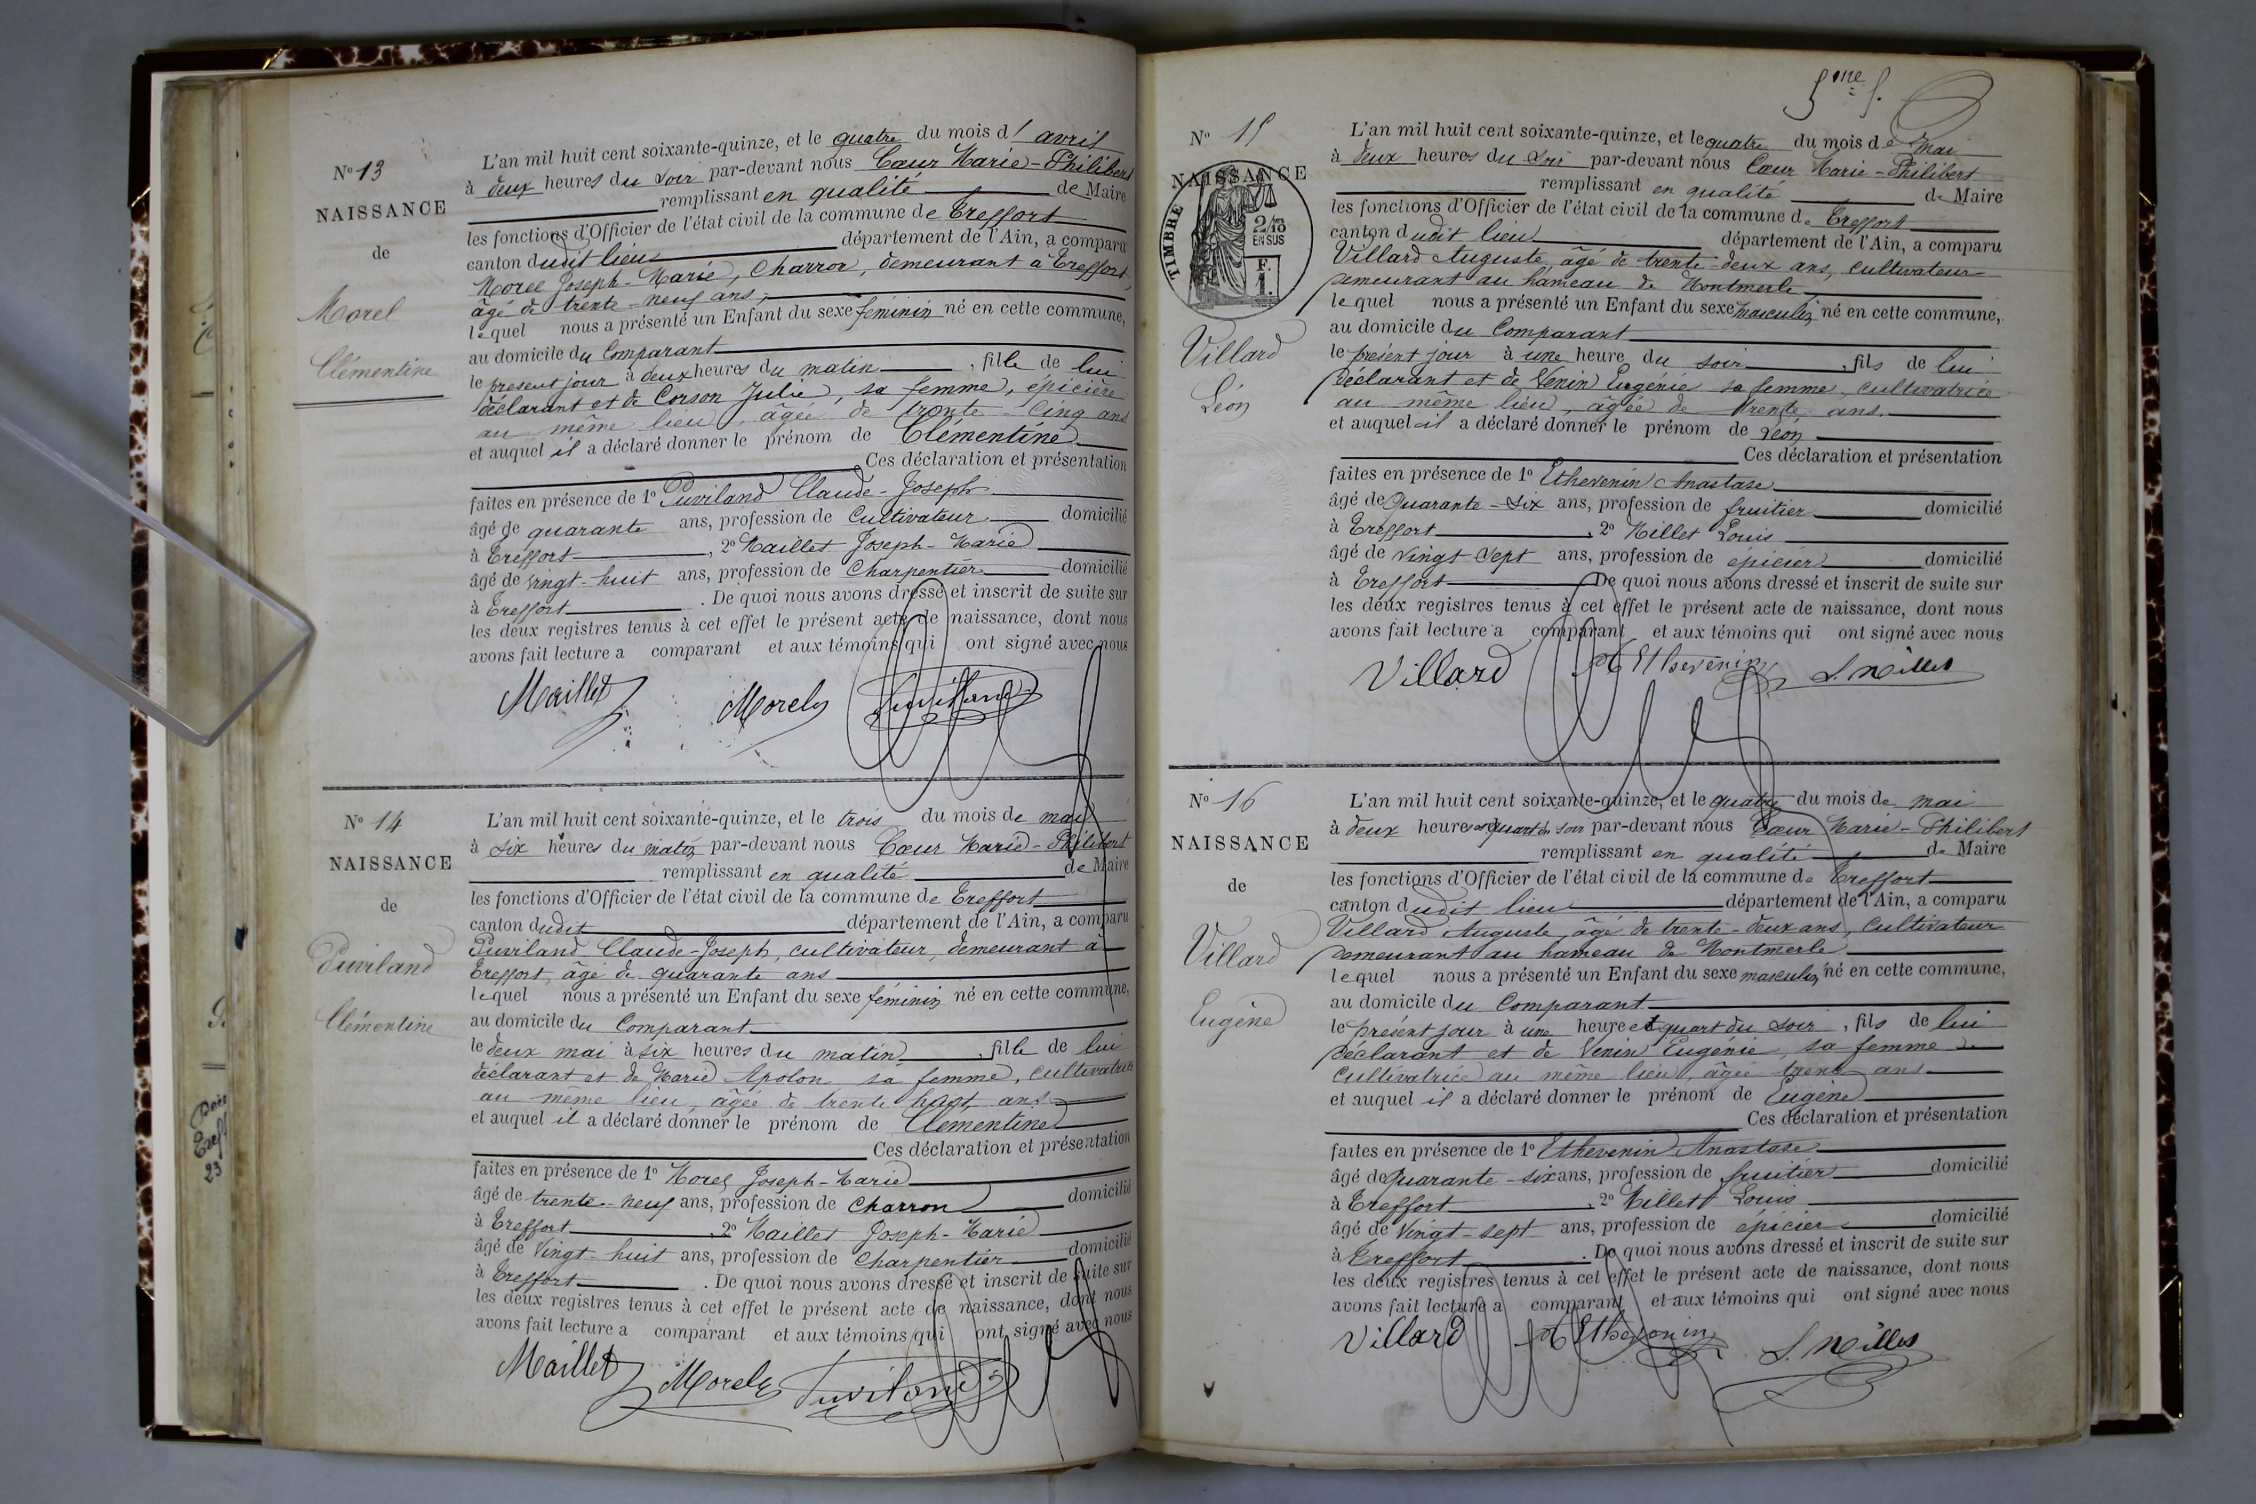 N° 13
NAISSANCE
de
Morel
Clémentine
L'an mil huit cent soixante-quinze, et le quatre du mois d'avril
à deux heures du soir par-devant nous Cœur Marie-Philibert
remplissant en qualité de Maire
les fonctions d'Officier de l'état civil de la commune de Treffort
canton dudit lieu département de l'Ain, a comparu
Morel Joseph-Marie, Charron, demeurant à Treffort,
âgé de trente-neuf ans,
lequel nous a présenté un Enfant du sexe féminin né en cette commune,
au domicile du Comparant
le présent jour à deux heures du matin, fille de lui
déclarant et de Corson Julie, sa femme, épicière
au même lieu, âgée de trente-Cinq ans
et auquel il a déclaré donner le prénom de Clémentine
Ces déclaration et présentation
faites en présence de 1° Puviland Claude-Joseph
âgé de quarante ans, profession de Cultivateur domicilié
à Treffort, 2° Maillet Joseph-Marie
âgé de vingt-huit ans, profession de Charpentier domicilié
à Treffort. De quoi nous avons dressé et inscrit de suite sur
les deux registres tenus à cet effet le présent acte de naissance, dont nous
avons fait lecture a comparant et aux témoins qui ont signé avec nous
Maillet Morel Puviland
N° 14
NAISSANCE
de
Puviland
Clémentine
L'an mil huit cent soixante-quinze, et le trois du mois de mai
à six heures du matin par-devant nous Cœur Marie-Philibert
remplissant en qualité de Maire
les fonctions d'Officier de l'état civil de la commune de Treffort
canton dudit département de l'Ain, a comparu
Puviland Claude-Joseph, cultivateur, demeurant à
Treffort, âgé de quarante ans
lequel nous a présenté un Enfant du sexe féminin né en cette commune,
au domicile du Comparant
le deux mai à six heures du matin, fille de lui
déclarant et de Marie Apolon sa femme, cultivatrice
au même lieu, âgée de trente huit ans
et auquel il a déclaré donner le prénom de Clementine
Ces déclaration et présentation
faites en présence de 1° Morel Joseph-Marie
âgé de trente-neuf ans, profession de Charron domicilié
à Treffort, 2° Maillet Joseph-Marie
âgé de Vingt-huit ans, profession de Charpentier domicilié
à Treffort. De quoi nous avons dressé et inscrit de suite sur
les deux registres tenus à cet effet le présent acte de naissance, dont nous
avons fait lecture a comparant et aux témoins qui ont signé avec nous
Maillet Morel Puviland
5me f.
N° 15
NAISSANCE
TIMBRE
2/10
EN SUS
F.
1.
Villard
Léon
L'an mil huit cent soixante-quinze, et le quatre du mois de mai
à deux heures du soir par-devant nous Cœur Marie-Philibert
remplissant en qualité de Maire
les fonctions d'Officier de l'état civil de la commune de Treffort
canton dudit lieu département de l'Ain, a comparu
Villard Auguste âgé de trente-deux ans, cultivateur
demeurant au hameau de Montmerle
lequel nous a présenté un Enfant du sexe masculin né en cette commune,
au domicile du Comparant
le présent jour à une heure du soir, fils de lui
déclarant et de Venin Eugénie sa femme, cultivatrice
au même lieu, âgée de trente ans.
et auquel il a déclaré donner le prénom de Léon
Ces déclaration et présentation
faites en présence de 1° Ethevenin Anastase
âgé de Quarante-six ans, profession de fruitier domicilié
à Treffort, 2° Millet Louis
âgé de vingt sept ans, profession de épicier domicilié
à Treffort De quoi nous avons dressé et inscrit de suite sur
les deux registres tenus à cet effet le présent acte de naissance, dont nous
avons fait lecture a comparant et aux témoins qui ont signé avec nous
Villard A Ethevenin L. Millet
N° 16
NAISSANCE
de
Villard
Eugène
L'an mil huit cent soixante-quinze, et le quatre du mois de mai
à deux heures et quart du soir par-devant nous Cœur Marie-Philibert
remplissant en qualité de Maire
les fonctions d'Officier de l'état civil de la commune de Treffort
canton dudit lieu département de l'Ain, a comparu
Villard Auguste, âgé de trente-deux ans, Cultivateur
demeurant au hameau de Montmerle
lequel nous a présenté un Enfant du sexe masculin né en cette commune,
au domicile du Comparant
le présent jour à une heure et quart du soir, fils de lui
déclarant et de Venin Eugénie, sa femme
Cultivatrice au même lieu, âgée trente ans
et auquel il a déclaré donner le prénom de Eugène
Ces déclaration et présentation
faites en présence de 1° Ethevenin Anastase
âgé de Quarante-six ans, profession de fruitier domicilié
à Treffort, 2° Millet Louis
âgé de Vingt-sept ans, profession de épicier domicilié
à Treffort. De quoi nous avons dressé et inscrit de suite sur
les deux registres tenus à cet effet le présent acte de naissance, dont nous
avons fait lecture a comparant et aux témoins qui ont signé avec nous
Villard A Ethevenin L. Millet